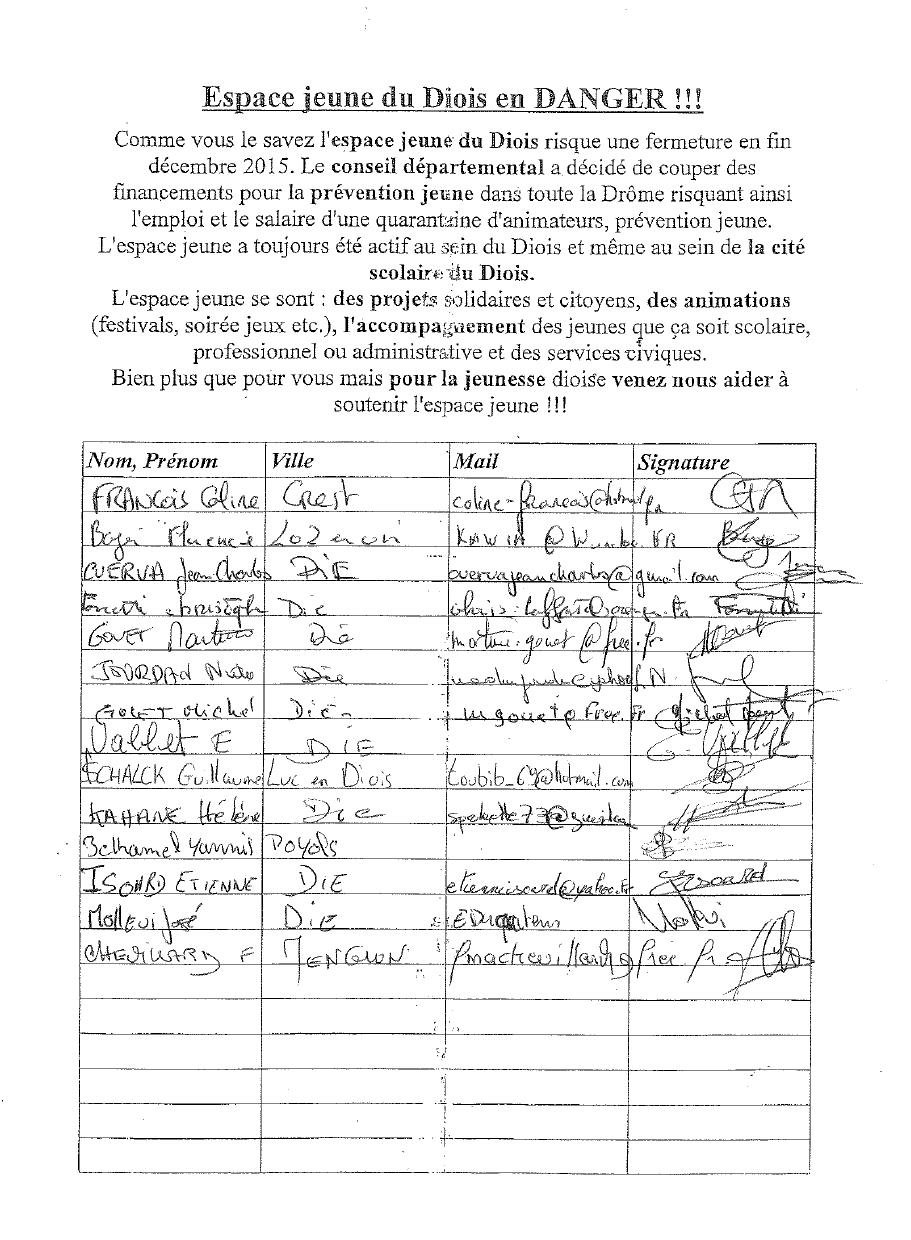 Espace jeune du Diois en DANGER !!!
Comme vous le savez l'espace jeune du Diois risque une fermeture en fin
décembre 2015. Le conseil départemental a décidé de couper des
financements pour la prévention jeune dans toute la Drôme risquant ainsi
l'emploi et le salaire d'une quarantaine d'animateurs, prévention jeune.
L'espace jeune a toujours été actif au sein du Diois et même au sein de la cité
scolaire du Diois.
L'espace jeune se sont : des projets solidaires et citoyens, des animations
(festivals, soirée jeux etc.), l'accompagnement des jeunes que ça soit scolaire,
professionnel ou administrative et des services civiques.
Bien plus que pour vous mais pour la jeunesse dioise venez nous aider à
soutenir l'espace jeune !!!
Nom, Prénom Ville Mail Signature
FRANCOIS Coline Crest
CUERVA Jean Charles DIE cuervajeancharles@gmail.com
Die
GOUET Die
JOURDAN Die
GOUET Michel Die
Vallet E DIE
SCHALCK Guillaume Luc en Diois toubib_69@hotmail.com
KAHANE Hélène Die
Bethamel Yannis POYOLS
ISOARD ETIENNE DIE etienneisoard@yahoo.fr
José DIE
F MENGLON